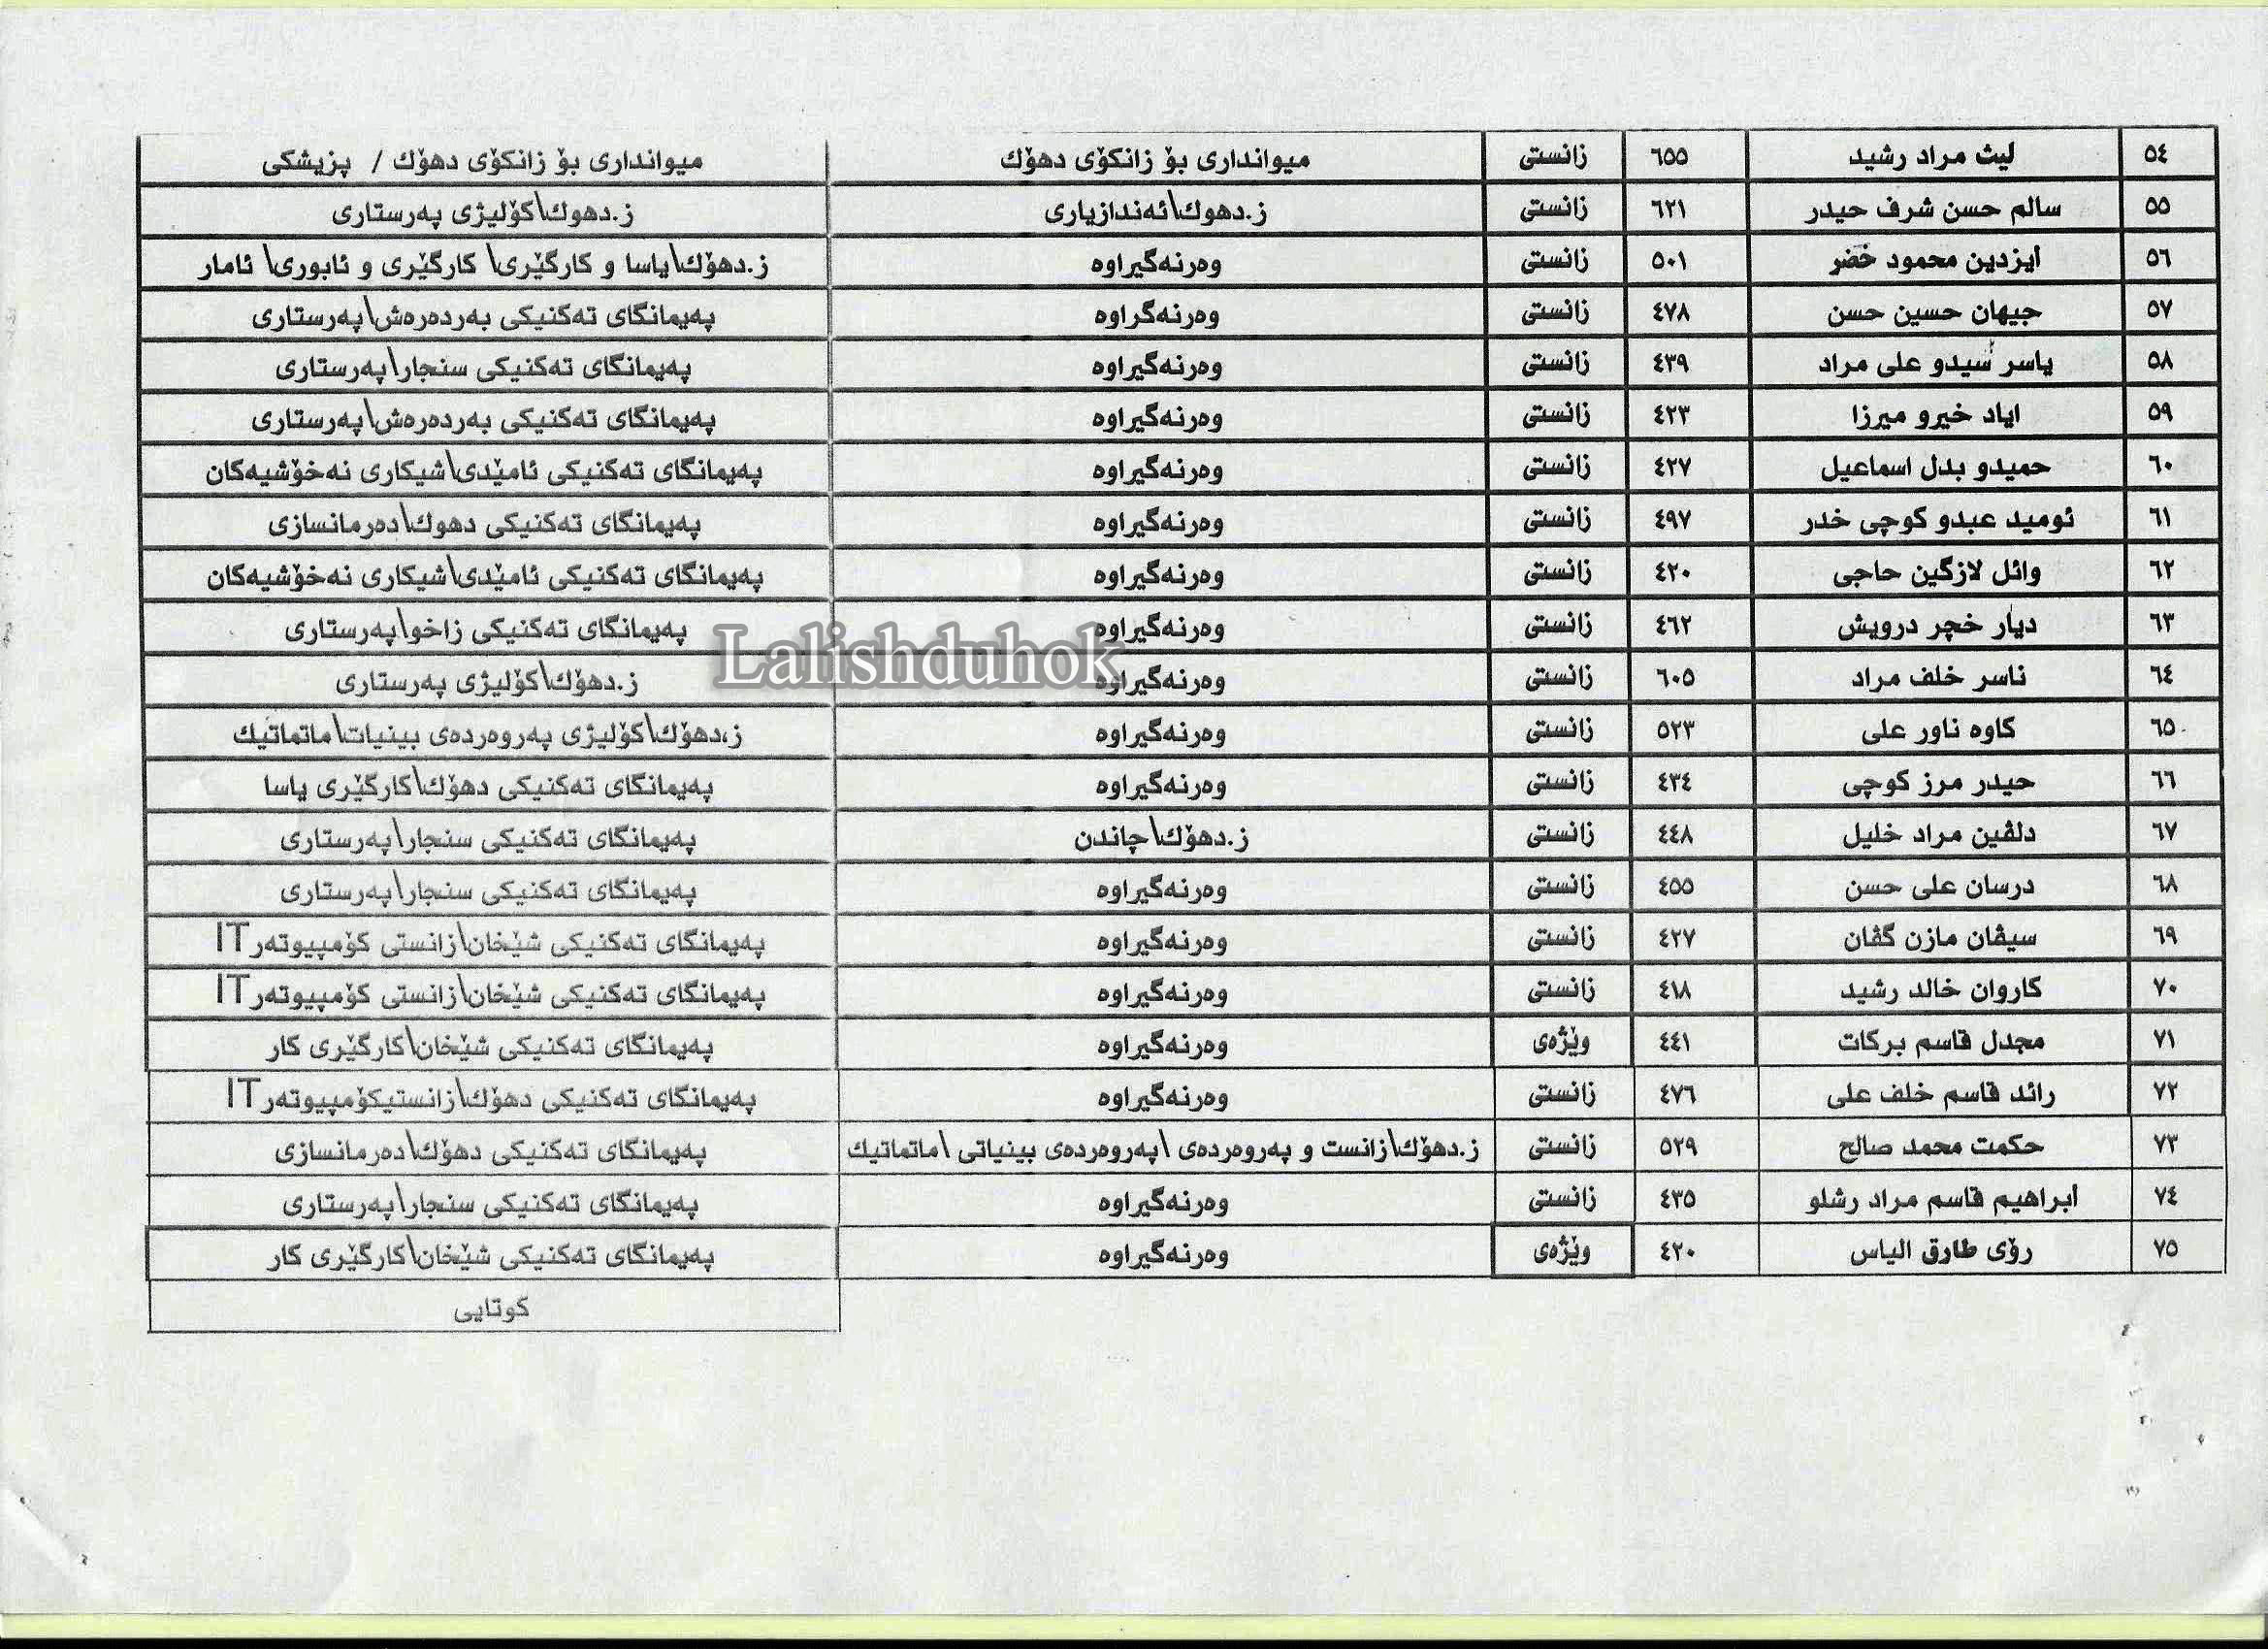 ٥٤ ليث مراد رشيد ٦٥٥ زانستی میوانداری بۆ زانكۆی دهۆك میوانداری بۆ زانكۆی دهۆك / پزیشكی
٥٥ سالم حسن شرف حيدر ٦٢١ زانستی ز.دهوك\ئەندازیاری ز.دهوك\كۆلیژی پەرستاری
٥٦ ايزدين محمود خضر ٥٠١ زانستی وەرنەگیراوە ز.دهۆك\یاسا و كارگێری\ كارگێری و ئابوری\ ئامار
٥٧ جيهان حسين حسن ٤٧٨ زانستی وەرنەگراوە پەیمانگای تەكنیكی بەردەرەش\پەرستاری
٥٨ ياسر سيدو علی مراد ٤٣٩ زانستی وەرنەگیراوە پەیمانگای تەكنیكی سنجار\پەرستاری
٥٩ اياد خيرو ميرزا ٤٢٣ زانستی وەرنەگیراوە پەیمانگای تەكنیكی بەردەرەش\پەرستاری
٦٠ حميدو بدل اسماعيل ٤٢٧ زانستی وەرنەگیراوە پەیمانگای تەكنیكی ئامێدی\شیكاری نەخۆشیەكان
٦١ ئوميد عبدو كوچی خدر ٤٩٧ زانستی وەرنەگیراوە پەیمانگای تەكنیكی دهوك\دەرمانسازی
٦٢ وائل لازگين حاجی ٤٢٠ زانستی وەرنەگیراوە پەیمانگای تەكنیكی ئامێدی\شیكاری نەخۆشیەكان
٦٣ ديار خچر درويش ٤٦٢ زانستی وەرنەگیراوە پەیمانگای تەكنیكی زاخو\پەرستاری
Lalishduhok
٦٤ ناسر خلف مراد ٦٠٥ زانستی وەرنەگیراوە ز.دهۆك\كۆلیژی پەرستاری
٦٥ كاوە ناور علی ٥٢٣ زانستی وەرنەگیراوە ز.دهۆك\كۆلیژی پەروەردەی بینیات\ماتماتیك
٦٦ حيدر مرز كوچی ٤٣٤ زانستی وەرنەگیراوە پەیمانگای تەكنیكی دهۆك\كارگێری یاسا
٦٧ دلڤين مراد خليل ٤٤٨ زانستی ز.دهۆك\چاندن پەیمانگای تەكنیكی سنجار\پەرستاری
٦٨ درسان علی حسن ٤٥٥ زانستی وەرنەگیراوە پەیمانگای تەكنیكی سنجار\پەرستاری
٦٩ سيڤان مازن گڤان ٤٢٧ زانستی وەرنەگیراوە پەیمانگای تەكنیكی شێخان\زانستی كۆمپیوتەر IT
٧٠ كاروان خالد رشيد ٤١٨ زانستی وەرنەگیراوە پەیمانگای تەكنیكی شێخان\زانستی كۆمپیوتەر IT
٧١ مجدل قاسم بركات ٤٤١ وێژەی وەرنەگیراوە پەیمانگای تەكنیكی شێخان\كارگێری كار
٧٢ رائد قاسم خلف علی ٤٧٦ زانستی وەرنەگیراوە پەیمانگای تەكنیكی دهۆك\زانستیكۆمپیوتەر IT
٧٣ حكمت محمد صالح ٥٢٩ زانستی ز.دهۆك\زانست و پەروەردەی \پەروەردەی بینیاتی \ماتماتیك پەیمانگای تەكنیكی دهۆك\دەرمانسازی
٧٤ ابراهيم قاسم مراد رشلو ٤٣٥ زانستی وەرنەگیراوە پەیمانگای تەكنیكی سنجار\پەرستاری
٧٥ رۆی طارق الياس ٤٢٠ وێژەی وەرنەگیراوە پەیمانگای تەكنیكی شێخان\كارگێری كار
كوتایی